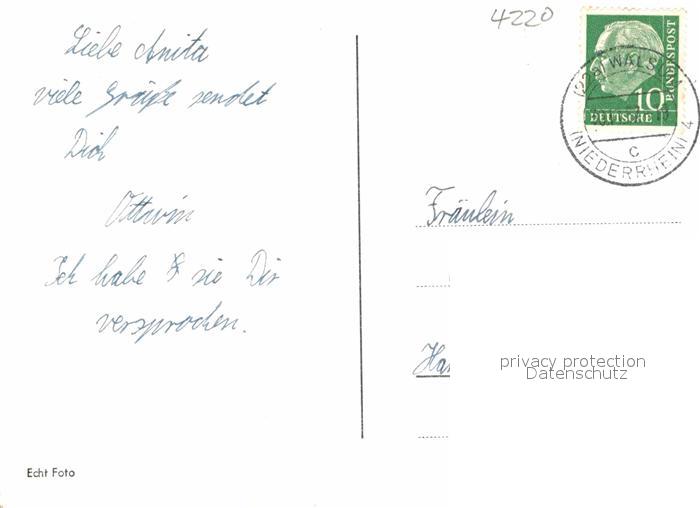 4220
Liebe Anita
viele Grüße sendet
Dich
Ottwin
Ich habe sie Dir
versprochen.
Echt Foto
DEUTSCHE BUNDESPOST
10
(22a) WALSUM
c
(NIEDERRHEIN) 4
Fräulein
Ha
privacy protection
Datenschutz